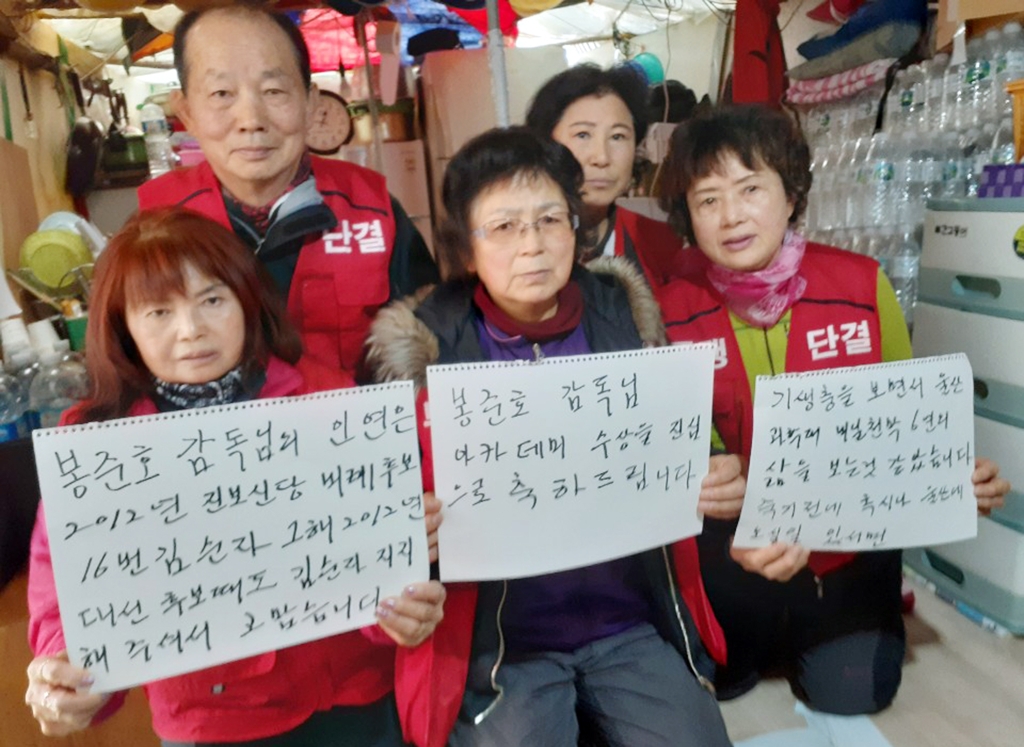 단결
단결
봉준호 감독님의 인연은
2012년 진보신당 비례후보
16번 김순자 그해 2012년
대선 후보때도 김순자 지지
해 주셔서 고맙습니다
봉준호 감독님
아카데미 수상을 진심
으로 축하드립니다
기생충을 보면서 울산
과학대 비닐천막 6년의
삶을 보는것 같았습니다
죽기전에 혹시나 울산에
오실일 있서면